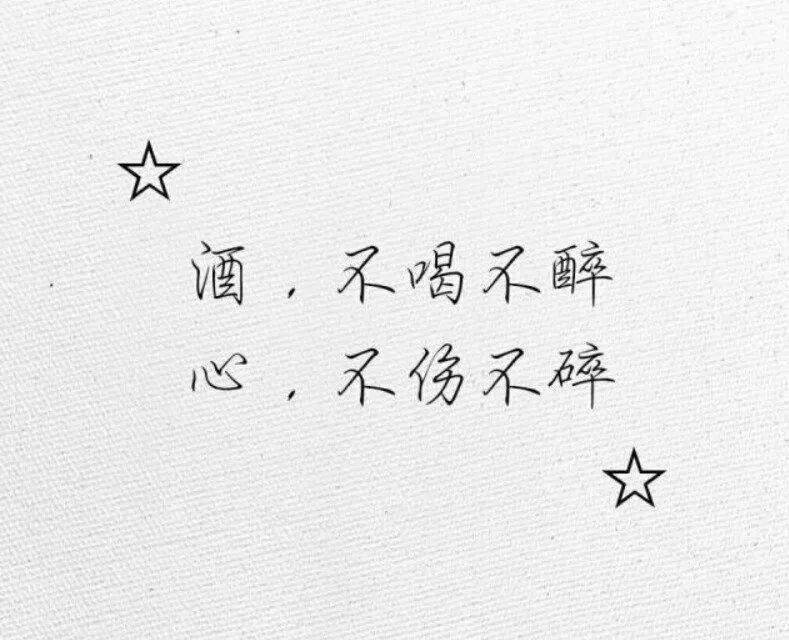 酒，不喝不醉
心，不伤不碎